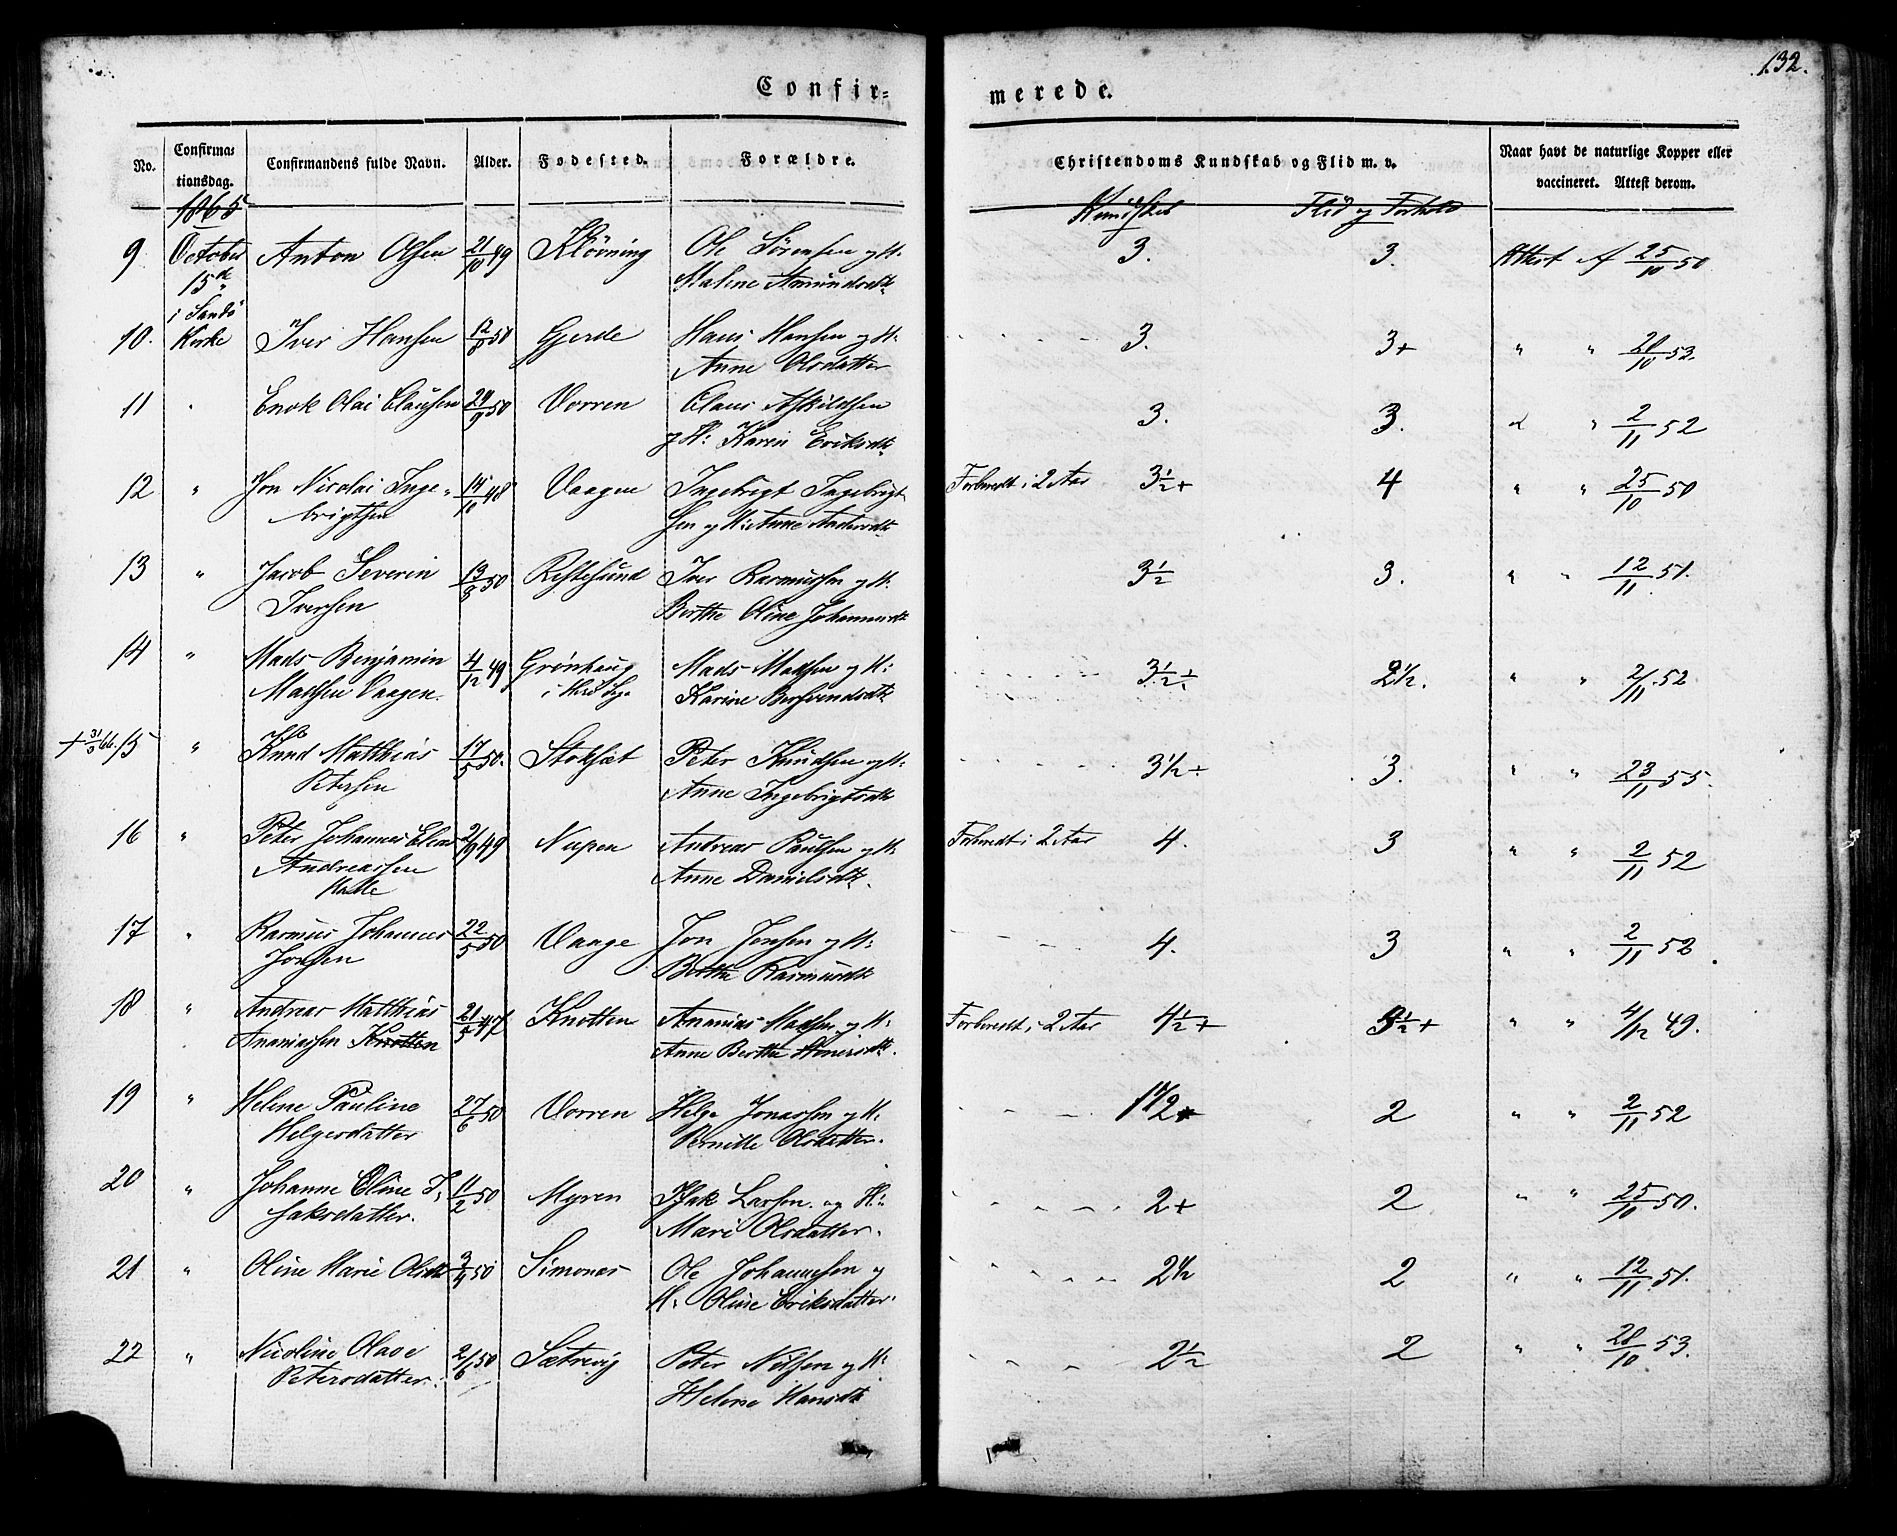 132.
Confir-
merede.
No.
Confirma-
tionsdag.
Confirmandens fulde Navn.
Alder.
Fødested.
Forældre.
Christendoms Kundskab og Flid m. v.
Naar havt de naturlige Kopper eller
vaccineret. Attest derom.
1865
Kundskab Flid og Forhold
9 October Anton Olsen 21/10 49 Kløvning Ole Sørensen og H: 3. 3. Attest af 25/10 50
15de Malene Amundsdt:
i Sandø
10. Kirke Iver Hansen 12/8 50 Gjerde Hans Hansen og H: 3. 3+ " " 28/10 53.
Anne Olsdatter
11 " Enok Olai Clausen 29/9 50 Vorren Claus Askildsen 3. 3. " " 2/11 52
og H: Karen Eriksdt:
12 " Jon Nicolai Inge- 14/10 48 Vaagen Ingebrigt Ingebrigt Forberedt i 2 Aar 3½+ 4 " " 25/10 50
brigtsen sen og H: Anne Andersdt:
13 " Jacob Severin 13/8 50 Røstesund Iver Rasmussen og H: 3½ 3. " " 12/11 51.
Iversen Berthe Oline Johannesdt:
14 " Mads Benjamin 4/12 49 Grønhaug Mads Madsen og H: 3½÷ 2½. " " 2/11 52
Madsen Vaagen. i Herø Karine Bersvendsdt:
+ 31/3 66. 15 " Knud Matthias 17/5 50. Stoksæt Peter Knudsen og H: 3½÷ 3. " " 23/11 55.
Petersen Anne Ingebrigtsdt:
16 " Peter Johannes Elias 2/9 49 Nupen Andreas Paulsen og H: Forberedt i 2 Aar 4. 3 " " 2/11 52
Andreassen Anne Danielsdt:
17 " Rasmus Johannes 22/5 50 Vaage Jon Jonsen og H: 4. 3 " " 2/11 52.
Jonsen Berthe Rasmusdt:
18 " Andreas Matthias 21/5 47 Knotten Ananias Madsen og H: Forberedt i 2 Aar 4½+ 3½+ " " 4/12 49.
Ananiassen Knotten Anne Berthe
19 " Helene Pauline 27/6 50 Vorren Helge Jonassen og H: 1½ 2 " " 2/11 52
Helgesdatter Pernille Olsdatter.
20 " Johanne Oline I- 11/2 50 Myren Isak Larsen og H: 2+ 2 " " 25/10 50.
saksdatter. Mari Olsdatter.
21 " Oline Marie Olsdt: 3/4 50 Simones Ole Johannesen og 2½ 2 " " 12/11 51.
H: Oline Eriksdatter.
22 " Nicoline Olave 2/6 50 Sætrevig Peter Nilsen og H: 2½ 2 " " 28/10 53.
Petersdatter. Helene Hansdt: